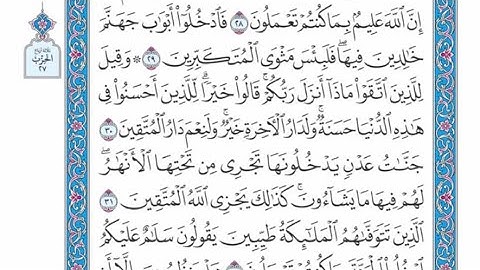 إِنَّ ٱللَّهَ عَلِيمٌۢ بِمَا كُنتُمْ تَعْمَلُونَ ٢٨ فَٱدْخُلُوٓا۟ أَبْوَٰبَ جَهَنَّمَ
خَٰلِدِينَ فِيهَا ۖ فَلَبِئْسَ مَثْوَى ٱلْمُتَكَبِّرِينَ ٢٩ ۞ وَقِيلَ
لِلَّذِينَ ٱتَّقَوْا۟ مَاذَآ أَنزَلَ رَبُّكُمْ ۚ قَالُوا۟ خَيْرًا ۗ لِّلَّذِينَ أَحْسَنُوا۟ فِى
هَٰذِهِ ٱلدُّنْيَا حَسَنَةٌ ۚ وَلَدَارُ ٱلْءَاخِرَةِ خَيْرٌ ۚ وَلَنِعْمَ دَارُ ٱلْمُتَّقِينَ ٣٠
جَنَّٰتُ عَدْنٍ يَدْخُلُونَهَا تَجْرِى مِن تَحْتِهَا ٱلْأَنْهَٰرُ ۖ
لَهُمْ فِيهَا مَا يَشَآءُونَ ۚ كَذَٰلِكَ يَجْزِى ٱللَّهُ ٱلْمُتَّقِينَ ٣١
ٱلَّذِينَ تَتَوَفَّىٰهُمُ ٱلْمَلَٰٓئِكَةُ طَيِّبِينَ ۙ يَقُولُونَ سَلَٰمٌ عَلَيْكُمُ
الحزب
٢٧